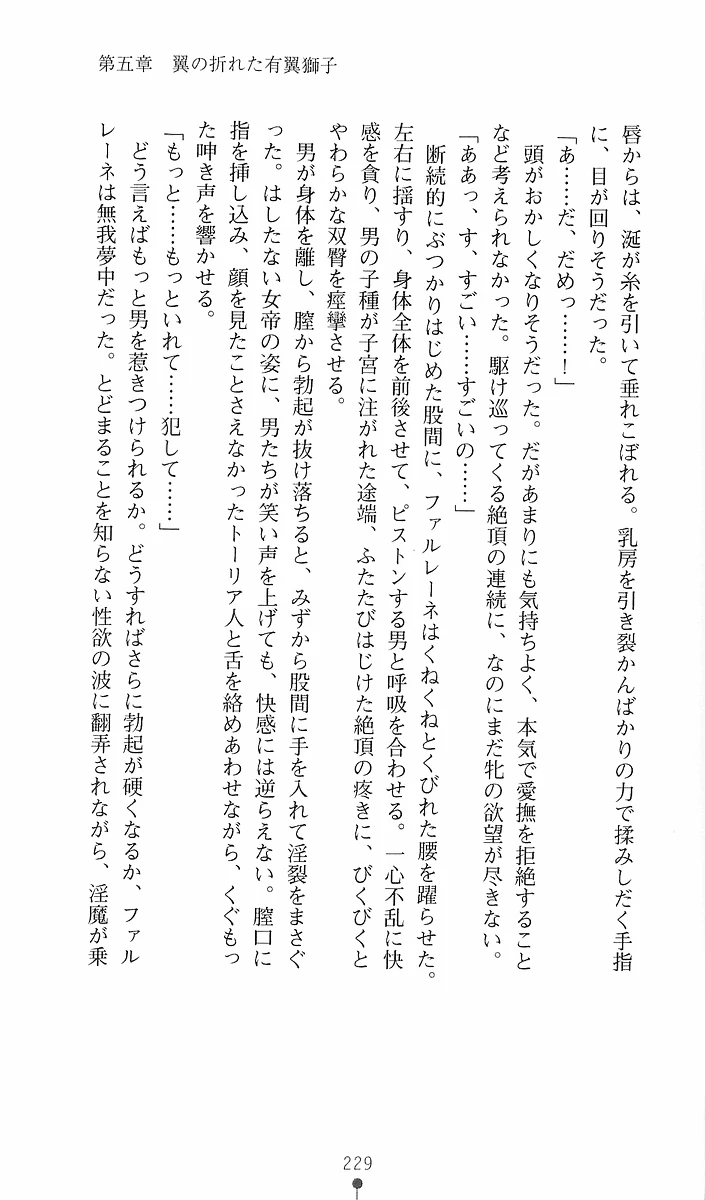 第五章　翼の折れた有翼獅子
唇からは、涎が糸を引いて垂れこぼれる。乳房を引き裂かんばかりの力で揉みしだく手指
に、目が回りそうだった。
「あ……だ、だめっ……！」
頭がおかしくなりそうだった。だがあまりにも気持ちよく、本気で愛撫を拒絶すること
など考えられなかった。駆け巡ってくる絶頂の連続に、なのにまだ牝の欲望が尽きない。
「ああっ、す、すごい……すごいの……」
断続的にぶつかりはじめた股間に、ファルレーネはくねくねとくびれた腰を躍らせた。
左右に揺すり、身体全体を前後させて、ピストンする男と呼吸を合わせる。一心不乱に快
感を貪り、男の子種が子宮に注がれた途端、ふたたびはじけた絶頂の疼きに、びくびくと
やわらかな双臀を痙攣させる。
男が身体を離し、膣から勃起が抜け落ちると、みずから股間に手を入れて淫裂をまさぐ
った。はしたない女帝の姿に、男たちが笑い声を上げても、快感には逆らえない。膣口に
指を挿し込み、顔を見たことさえなかったトーリア人と舌を絡めあわせながら、くぐもっ
た呻き声を響かせる。
「もっと……もっといれて……犯して……」
どう言えばもっと男を惹きつけられるか。どうすればさらに勃起が硬くなるか、ファル
レーネは無我夢中だった。とどまることを知らない性欲の波に翻弄されながら、淫魔が乗
229